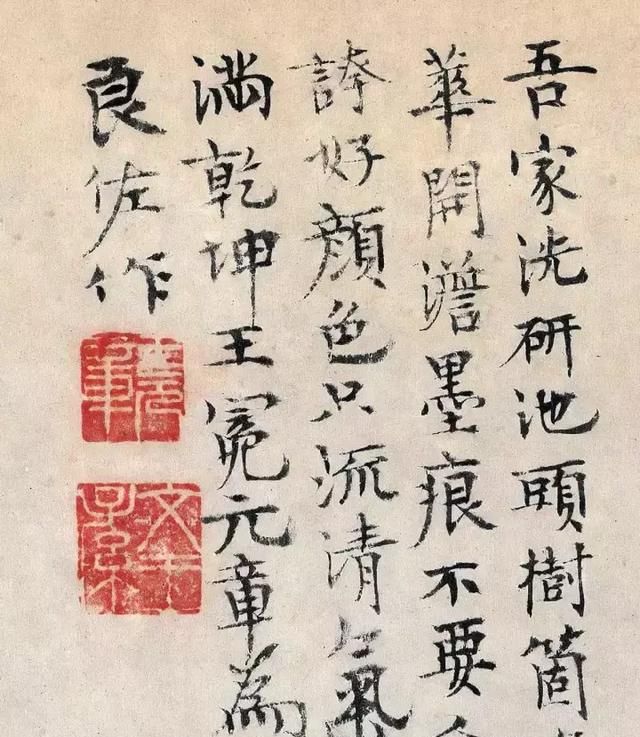 吾家洗研池頭樹箇
華開澹墨痕不要
誇好顔色只流清氣
満乾坤王冕元章為
良佐作
文王子孫